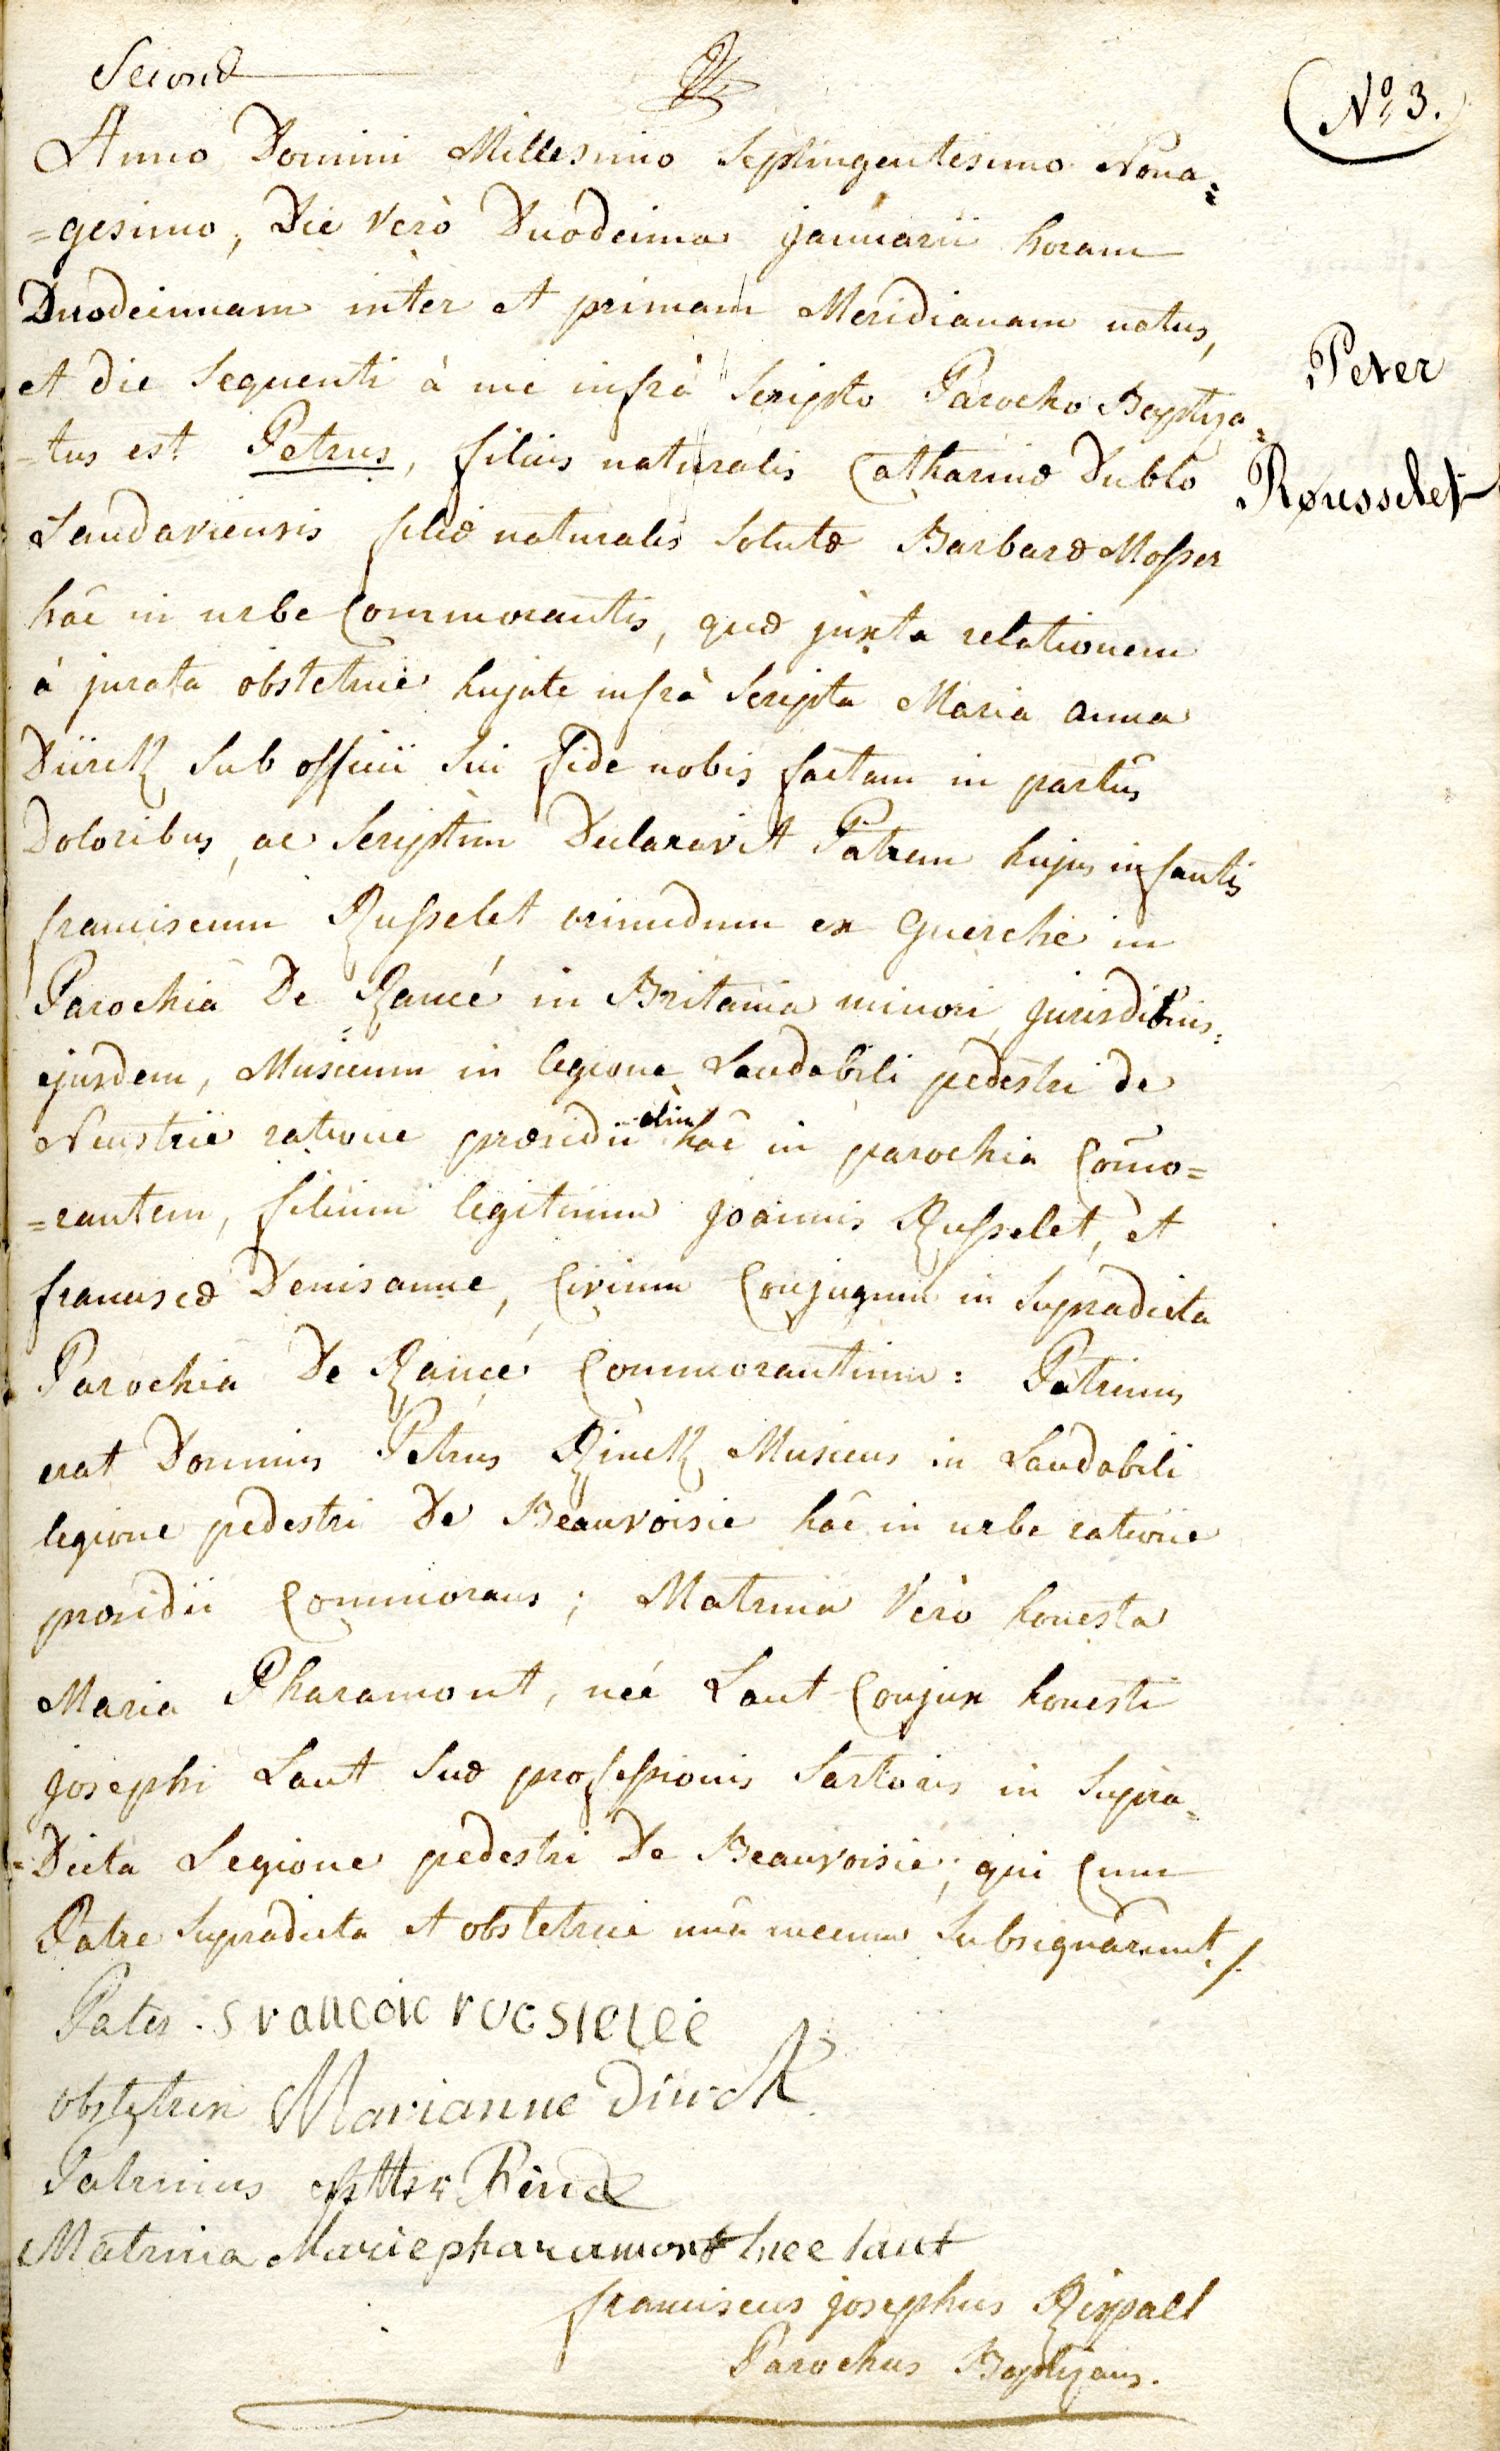 Second
No 3.
Anno Domini Millesimo Septingentesimo Nona=
=gesimo, Die verò Duodecima januarii horam
Duodecimam inter et primam Meridianam natus,
et die Sequenti à me infrà Scripto Parocho Baptiza=
=tus est Petrus, filius naturalis Catharinæ Dublo
Peter
Rousselet
Landaviensis filiæ naturalis Solutæ Barbaræ Mosser
hâc in urbe Commorantis, quæ juxta relationem
à jurata obstetrice hujate infrà Scripta Maria anna
Dürck Sub officii Sui fide nobis factam in partûs
Doloribus, ac Scriptim Declaravit Patrem hujus infantis
franciscum Russelet oriundum ex Guerche in
Parochiâ De Rancé in Britania minori, jurisdictionis=
ejusdem, Musicum in legione Laudabili pedestri de
Neustrie ratione præsidii olim hâc in parochia Com̃o=
=rantem, filium legitimum joannis Russelet, et
franciscæ Denisanne, Civium Conjugum in Supradicta
Parochiâ De Rancé Commorantium: Patrinus
erat Dominus Petrus Rinck Musicus in Laudabili
legione pedestri De Beauvoisie hâc in urbe ratione
præsidii Commorans; Matrina Verò honesta
Maria Pharamont, née Laut Conjux honesti
josephi Laut Suæ professionis Sartoris in Supra=
=Dicta Legione pedestri De Beauvoisie, qui Cum
Patre Supradicto et obstetrice unà mecum Subsignârunt./.
Pater. francoic rocsielee
obstetrix Marianne Dürck
Patrinus petter Rinck
Matrina Marie pharamont nee laut
franciscus josephus Rippell
Parochus Baptizans.